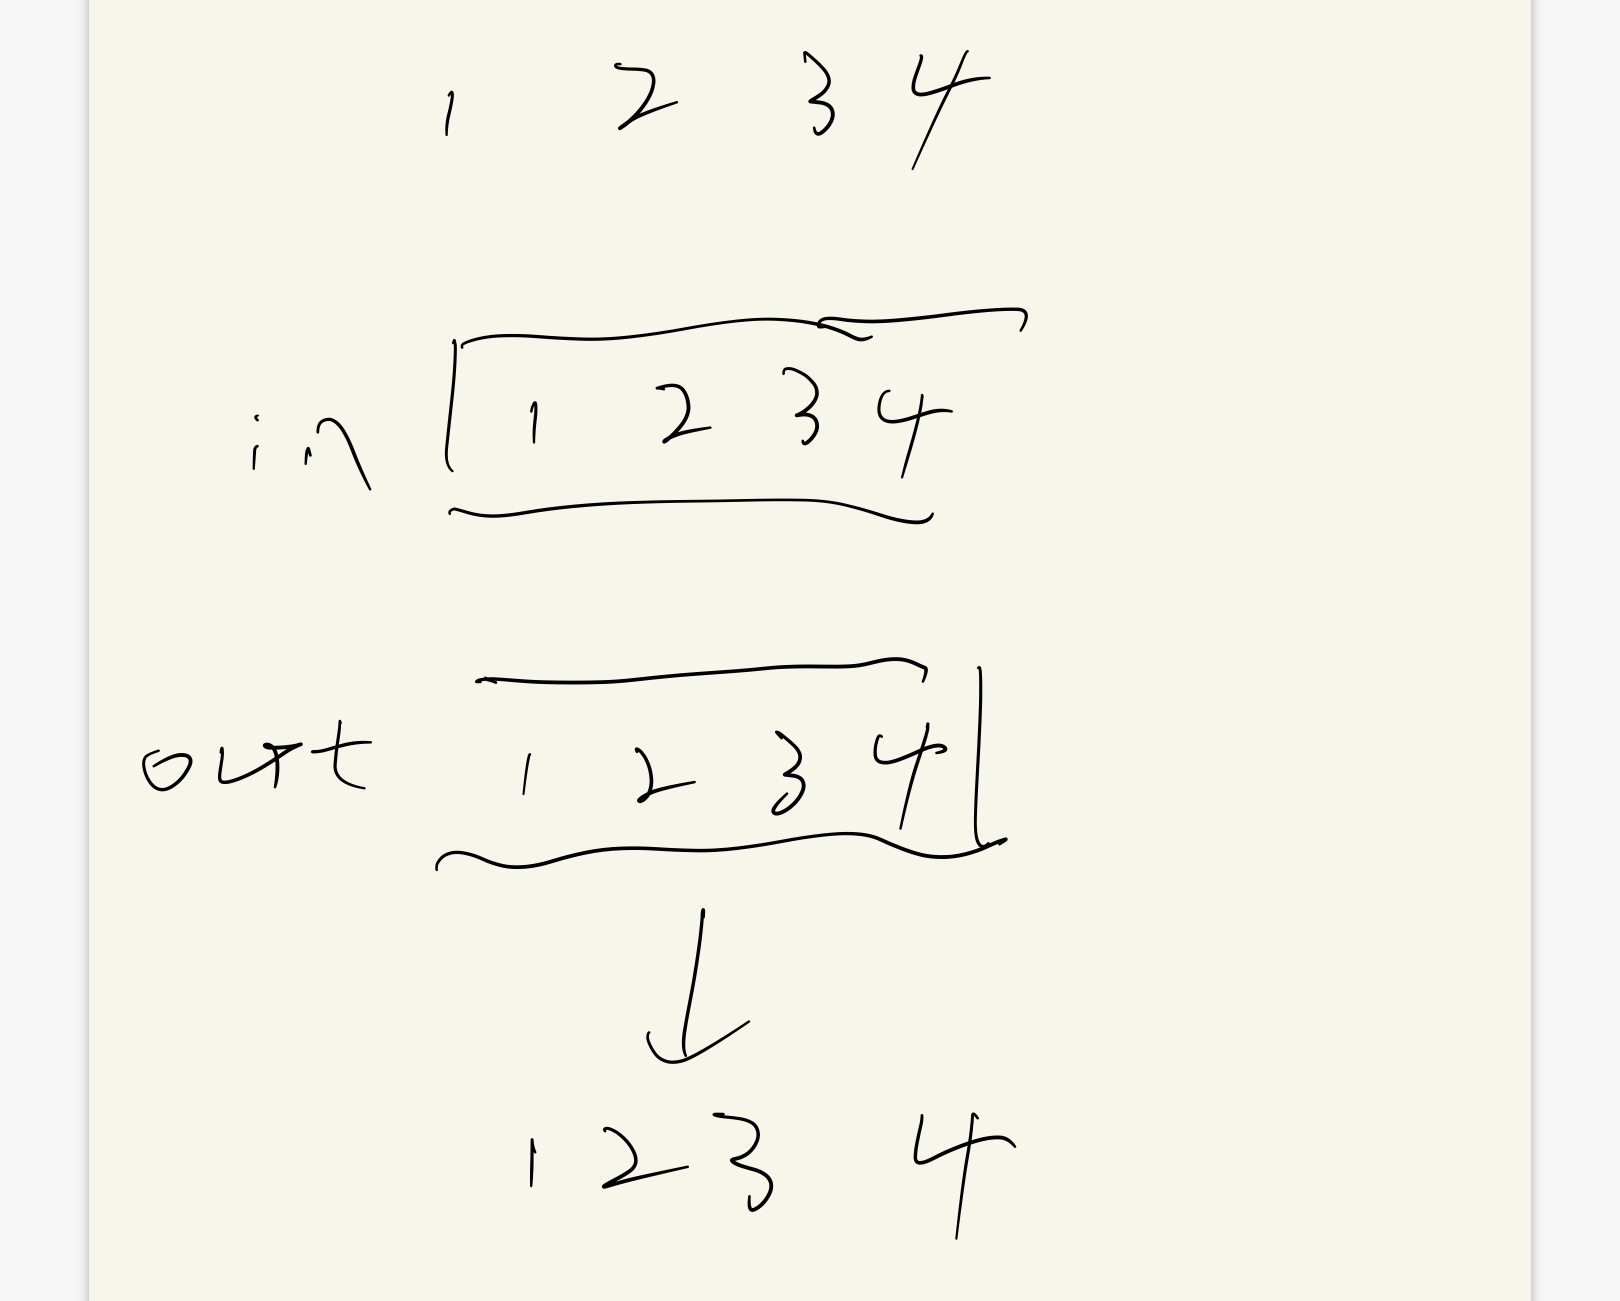 1 2 3 4
in 1 2 3 4
out 1 2 3 4
1 2 3 4